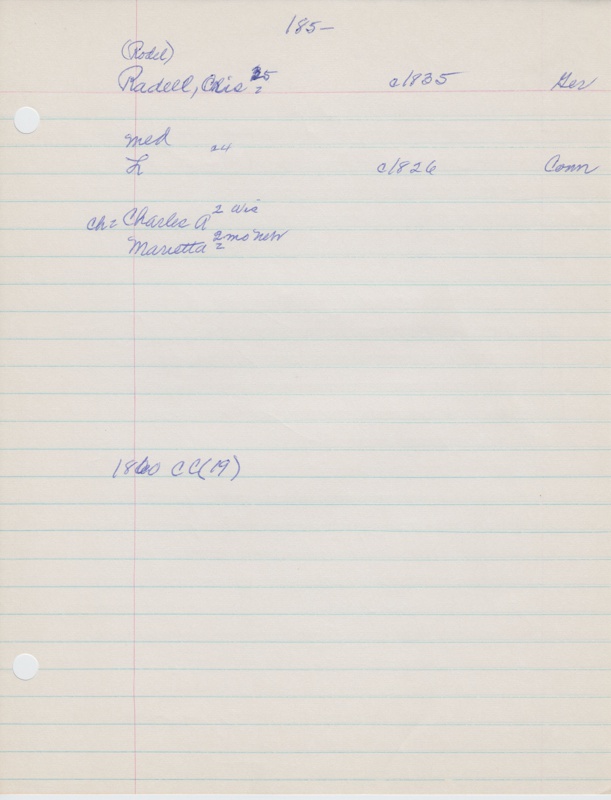 185-
(Rodel)
Radell, Chis 25 c1835 Ger
med
L 24 c1826 Conn
ch: Charles A 2 Wis
Marietta 2 mo Neb
1860 CC(19)